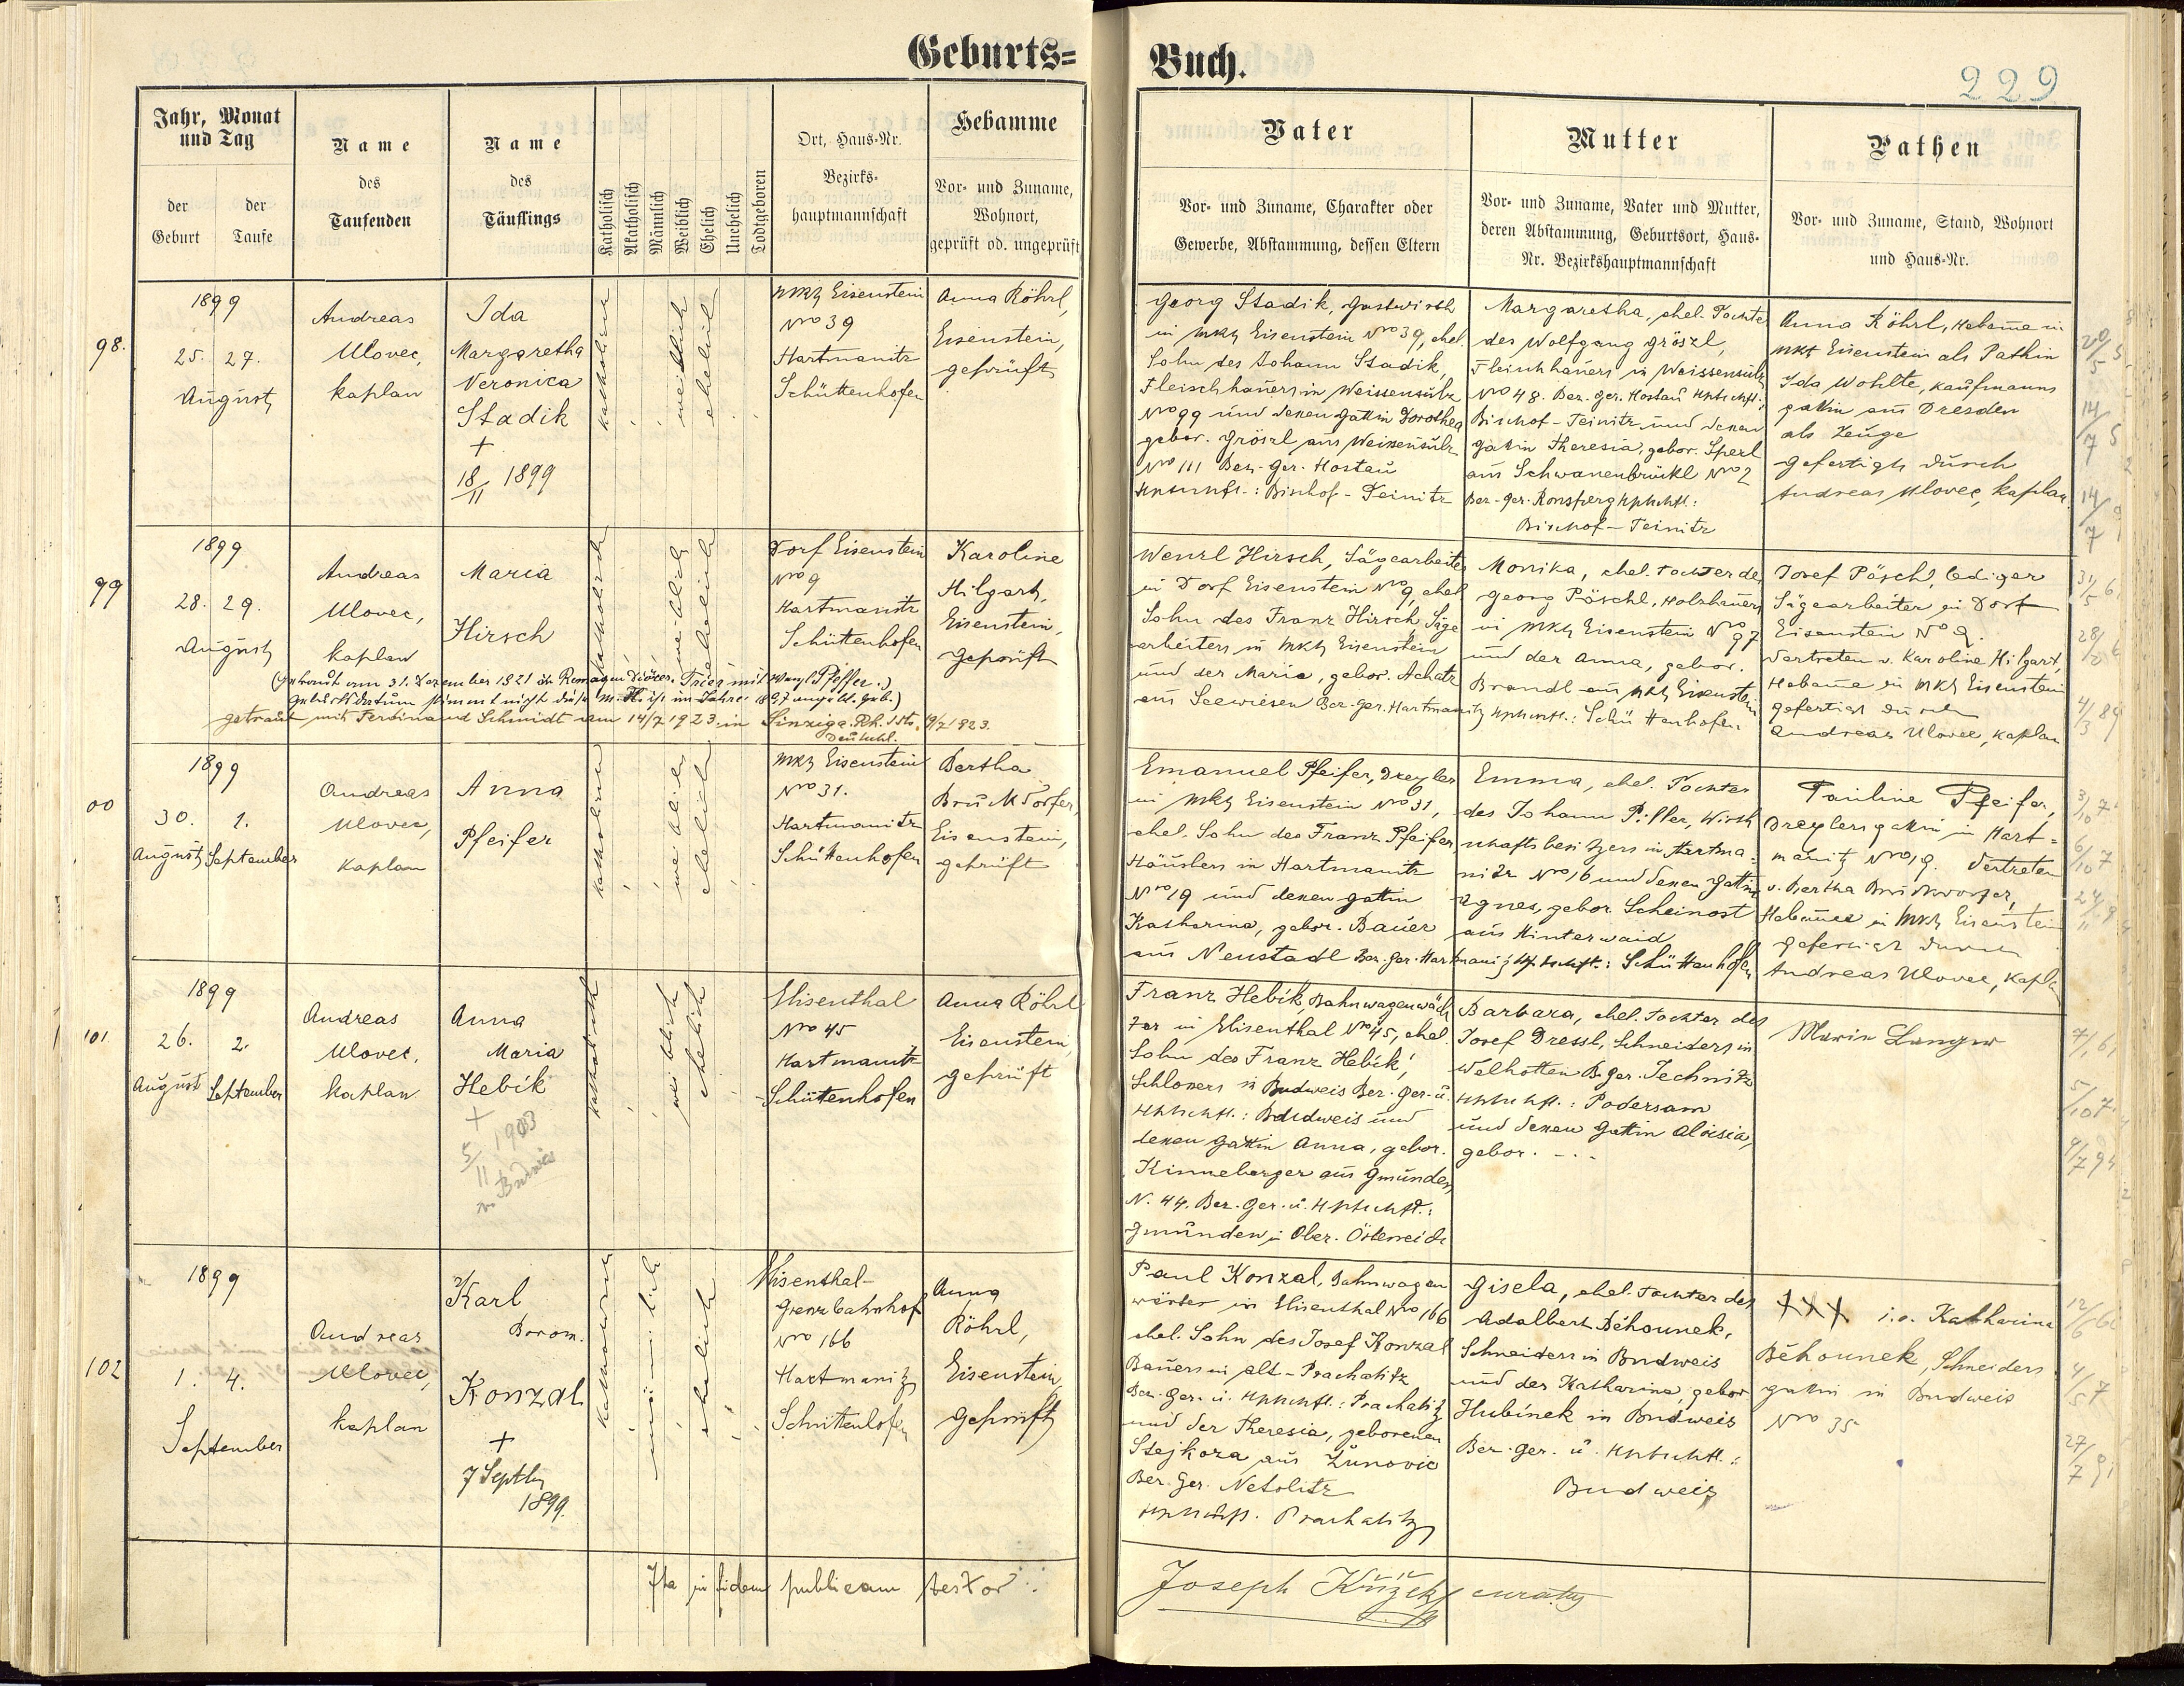 Geburts=
Buch.
229
Jahr, Monat
und Tag
der
Geburt
der
Taufe
Name
des
Taufenden
Name
des
Täuflings
Katholisch
Akatholisch
Männlich
Weiblich
Ehelich
Unehelich
Todtgeboren
Ort, Haus-Nr.
Bezirks-
hauptmannschaft
Hebamme
Vor- und Zuname,
Wohnort,
geprüft od. ungeprüft
Vater
Vor- und Zuname, Charakter oder
Gewerbe, Abstammung, dessen Eltern
Mutter
Vor- und Zuname, Vater und Mutter,
deren Abstammung, Geburtsort, Haus-
Nr. Bezirkshauptmannschaft
Pathen
Vor- und Zuname, Stand, Wohnort
und Haus-Nr.
98.
1899
25. 27.
August
Andreas
Ulovec,
kaplan
Ida
Margaretha
Veronica
Stadik
+
18/11 1899
katholisch
weiblich
ehelich
Mkt Eisenstein
Nro 39
Hartmanitz
Schüttenhofen
Anna Röhrl,
Eisenstein,
geprüft
Georg Stadik, Gastwirth
in Mkt Eisenstein Nro 39, ehel.
Sohn des Johann Stadik,
Fleischhauers in Weissensulz
Nro 99 und dessen Gattin Dorothea
gebor. Gröszl aus Weissensulz
Nro 111 Bez. Ger. Hostau
Hptschft.: Bischof-Teinitz
Margaretha, ehel. Tochter
des Wolfgang Gröszl,
Fleischhauers in Weissensulz
Nro 48. Bez. Ger. Hostau Hptschft.:
Bischof-Teinitz und dessen
Gattin Theresia, gebor. Sperl
aus Schwanenbrückl Nro 2
Bez. Ger. Ronsperg Hptschft.:
Bischof-Teinitz
Anna Röhrl, Hebamme in
Mkt Eisenstein als Pathin
Ida Wohlte, Kaufmanns
gattin aus Dresden
als Zeuge
gefertigt durch
Andreas Ulovec, kaplan
99
1899
28. 29.
August
Andreas
Ulovec,
kaplan
Maria
Hirsch
katholisch
weiblich
ehelich
Dorf Eisenstein
Nro 9
Hartmanitz
Schüttenhofen
Karoline
Hilgart,
Eisenstein,
geprüft
(Getraut am 31. Dezember 1921 in Remagen Diözes. Trier mit Wenzl Pfeffer.)
getraut mit Ferdinand Schmidt am 14/7 1923 in Sinzig a. Rh.
Deutschl.
Wenzl Hirsch, Sägearbeiter
in Dorf Eisenstein Nro 9, ehel
Sohn des Franz Hirsch Säge
arbeiters in Mkt Eisenstein
und der Maria, gebor. Achatz
aus Seewiesen Bez. Ger. Hartmanitz Hptschft.: Schüttenhofen
Monika, ehel. Tochter des
Georg Pöschl, Holzhauers
in Mkt Eisenstein No 97
und der Anna, gebor.
Brandl aus Mkt Eisenstein
Josef Pöschl, lediger
Sägearbeiter in Dorf
Eisenstein No 9.
Vertreten v. Karoline Hilgart,
Hebamme in Mkt Eisenstein
gefertigt durch
Andreas Ulovec, kaplan
00
1899
30. 1.
August September
Andreas
Ulovec,
kaplan
Anna
Pfeifer
katholisch
weiblich
ehelich
Mkt Eisenstein
Nro 31.
Hartmanitz
Schüttenhofen
Bertha
Bruckdorfer,
Eisenstein,
geprüft
Emanuel Pfeifer, Drexler
in Mkt Eisenstein Nro 31,
ehel. Sohn des Franz Pfeifer,
Häuslers in Hartmanitz
Nro 19 und dessen Gattin
Katharina, gebor. Bauer
aus Neustadl Bez. Ger. Hartmanitz Hptschft.: Schüttenhofen
Emma, ehel. Tochter
des Johann Piller, Wirth
schaftsbesitzers in Hartma-
nitz Nro 16 und dessen Gattin
Agnes, gebor. Scheinost
aus Hinterwaid
Pauline Pfeifer,
Drexlersgattin in Hart-
manitz Nro 19. Vertreten
v. Bertha Bruckdorfer,
Hebamme in Mkt Eisenstein
gefertigt durch
Andreas Ulovec, kaplan
101
1899
26. 2.
August September
Andreas
Ulovec,
kaplan
Anna
Maria
Hebík
+
5/11 1903
in Budweis
katholisch
weiblich
ehelich
Elisenthal
Nro 45
Hartmanitz
Schüttenhofen
Anna Röhrl
Eisenstein,
geprüft
Franz Hebík, Bahnwagenwäch
ter in Elisenthal No 45, ehel.
Sohn des Franz Hebík,
Schlossers in Budweis Bez. Ger. u.
Hptschft.: Budweis und
dessen Gattin Anna, gebor.
Kinneberger aus Gmunden
N. 44. Bez. Ger. u. Hptschft.:
Gmunden in Ober. Österreich
Barbara, ehel. Tochter des
Josef Dressl, Schneiders in
Welhotten B. Ger. Jechnitz
Hptschft.: Podersam
und dessen Gattin Aloisia,
gebor. - . -
Maria Langer
102
1899
1. 4.
September
Andreas
Ulovec,
kaplan
Karl
Borom.
Konzal
+
7 Septbr
1899.
katholisch
männlich
ehelich
Elisenthal-
Grenzbahnhof
Nro 166
Hartmanitz
Schüttenhofen
Anna
Röhrl,
Eisenstein
geprüft
Paul Konzal, Bahnwagen
wärter in Elisenthal Nro 166
ehel. Sohn des Josef Konzal
Bauers in Alt-Prachatitz
Bez. Ger. u. Hptschft.: Prachatitz
und der Theresia, geborenen
Stejkoza aus Žunovic
Bez. Ger. Netolitz
Hptschft. Prachatitz
Gisela, ehel. Tochter des
Adalbert Béhounek,
Schneiders in Budweis
und der Katharina, gebor
Hubínek in Budweis
Bez. Ger. u. Hptschft.:
Budweis
+++ i.o. Katharina
Béhounek, Schneiders
gattin in Budweis
Nro 35
Ita in fidem publicam testor:
Joseph Křížek curatus